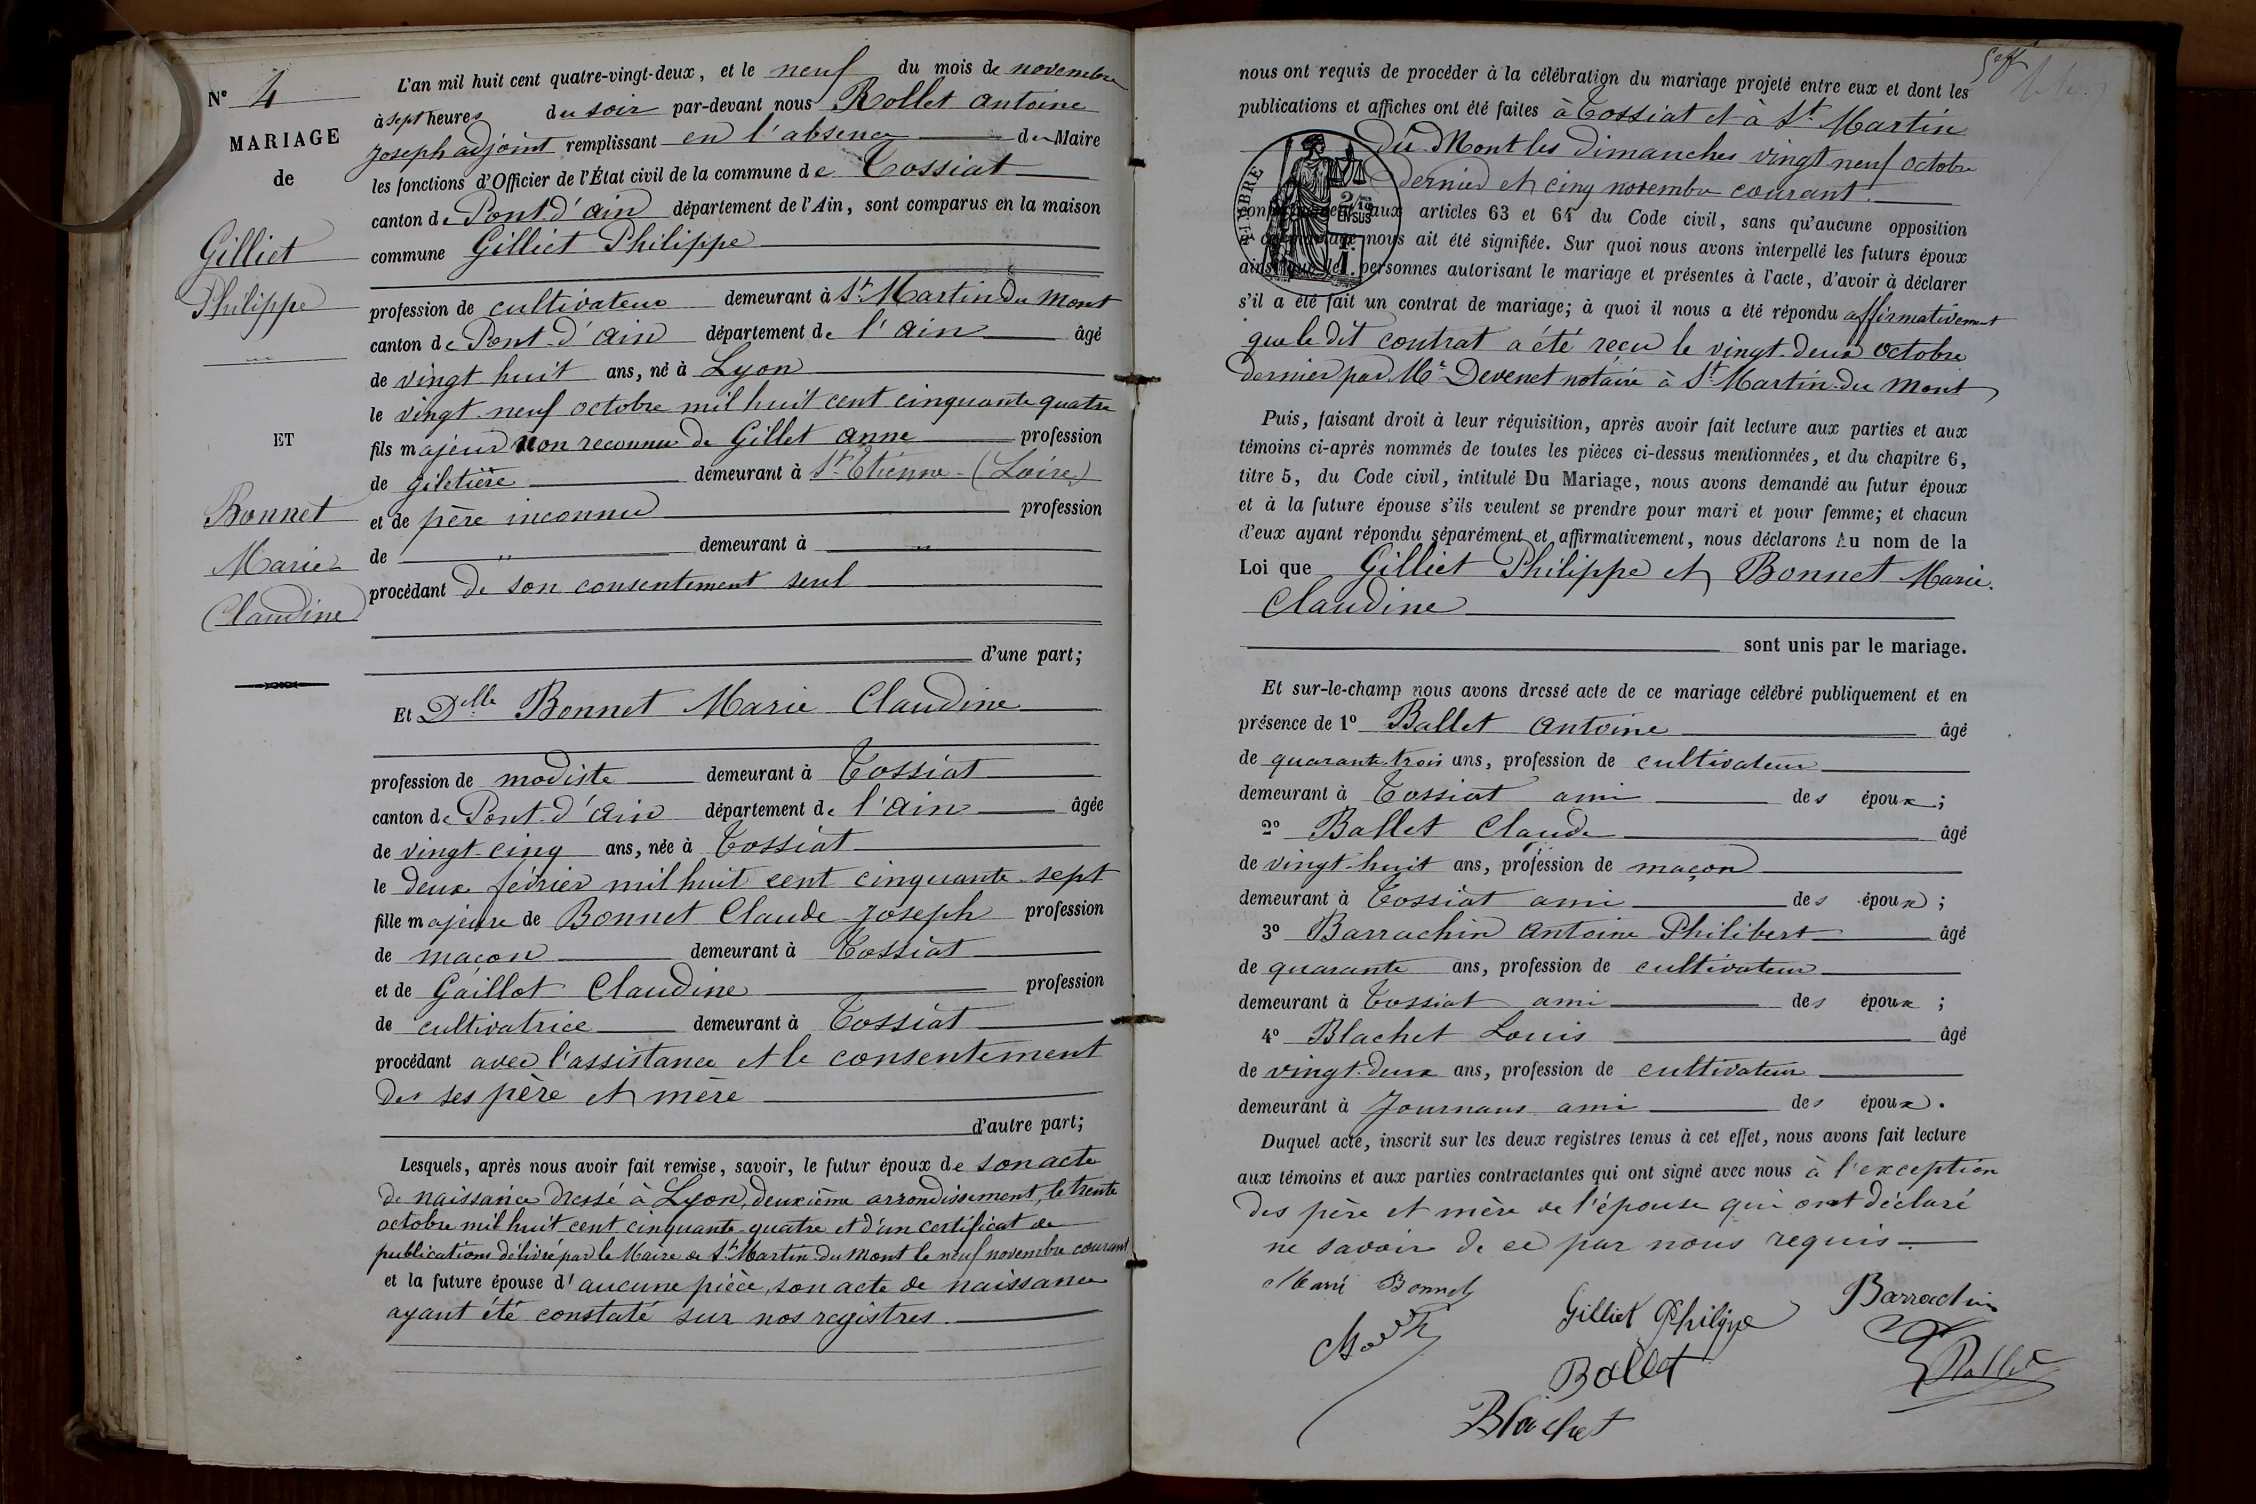 N° 4
MARIAGE
de
Gilliet
Philippe
ET
Bonnet
Marie
Claudine
L'an mil huit cent quatre-vingt-deux, et le neuf du mois de novembre
à sept heures du soir par-devant nous Rollet Antoine
Joseph adjoint remplissant en l'absence du Maire
les fonctions d'Officier de l'État civil de la commune de Tossiat
canton de Pont d'Ain département de l'Ain, sont comparus en la maison
commune Gilliet Philippe
profession de cultivateur demeurant à St Martin du Mont
canton de Pont d'Ain département de l'Ain âgé
de vingt huit ans, né à Lyon
le vingt neuf octobre mil huit cent cinquante quatre
fils majeur non reconnu de Gillet Anne profession
de giletière demeurant à St Etienne (Loire)
et de père inconnu profession
de " demeurant à "
procédant de son consentement seul
d'une part;
Et Delle Bonnet Marie Claudine
profession de modiste demeurant à Tossiat
canton de Pont d'Ain département de l'Ain âgée
de vingt cinq ans, née à Tossiat
le deux février mil huit cent cinquante sept
fille majeure de Bonnet Claude Joseph profession
de maçon demeurant à Tossiat
et de Gaillot Claudine profession
de cultivatrice demeurant à Tossiat
procédant avec l'assistance et le consentement
des ses père et mère
d'autre part;
Lesquels, après nous avoir fait remise, savoir, le futur époux de son acte
de naissance dressé à Lyon, deuxième arrondissement, le trente
octobre mil huit cent cinquante quatre et d'un certificat de
publications délivré par le Maire de St Martin du Mont le neuf novembre courant
et la future épouse d'aucune pièce, son acte de naissance
ayant été constaté sur nos registres.
nous ont requis de procéder à la célébration du mariage projeté entre eux et dont les
publications et affiches ont été faites à Tossiat et à St Martin
du Mont les dimanches vingt neuf octobre
dernier et cinq novembre courant.
conformément aux articles 63 et 64 du Code civil, sans qu'aucune opposition
à ce mariage nous ait été signifiée. Sur quoi nous avons interpellé les futurs époux
ainsi que les personnes autorisant le mariage et présentes à l'acte, d'avoir à déclarer
s'il a été fait un contrat de mariage; à quoi il nous a été répondu affirmativement
que le dit contrat a été reçu le vingt deux octobre
dernier par Me Devenet notaire à St Martin du Mont
TIMBRE
Puis, faisant droit à leur réquisition, après avoir fait lecture aux parties et aux
témoins ci-après nommés de toutes les pièces ci-dessus mentionnées, et du chapitre 6,
titre 5, du Code civil, intitulé Du Mariage, nous avons demandé au futur époux
et à la future épouse s'ils veulent se prendre pour mari et pour femme; et chacun
d'eux ayant répondu séparément et affirmativement, nous déclarons Au nom de la
Loi que Gilliet Philippe et Bonnet Marie
Claudine
sont unis par le mariage.
Et sur-le-champ nous avons dressé acte de ce mariage célébré publiquement et en
présence de 1° Ballet Antoine âgé
de quarante trois ans, profession de cultivateur
demeurant à Tossiat ami des époux;
2° Ballet Claude âgé
de vingt-huit ans, profession de maçon
demeurant à Tossiat ami des époux;
3° Barrachin Antoine Philibert âgé
de quarante ans, profession de cultivateur
demeurant à Tossiat ami des époux;
4° Blachet Louis âgé
de vingt-deux ans, profession de cultivateur
demeurant à Journans ami des époux.
Duquel acte, inscrit sur les deux registres tenus à cet effet, nous avons fait lecture
aux témoins et aux parties contractantes qui ont signé avec nous à l'exception
des père et mère de l'épouse qui ont déclaré
ne savoir de ce par nous requis.
Marie Bonnet
Gilliet Philippe
Barrachin
Ballet
Rollet
Blachet